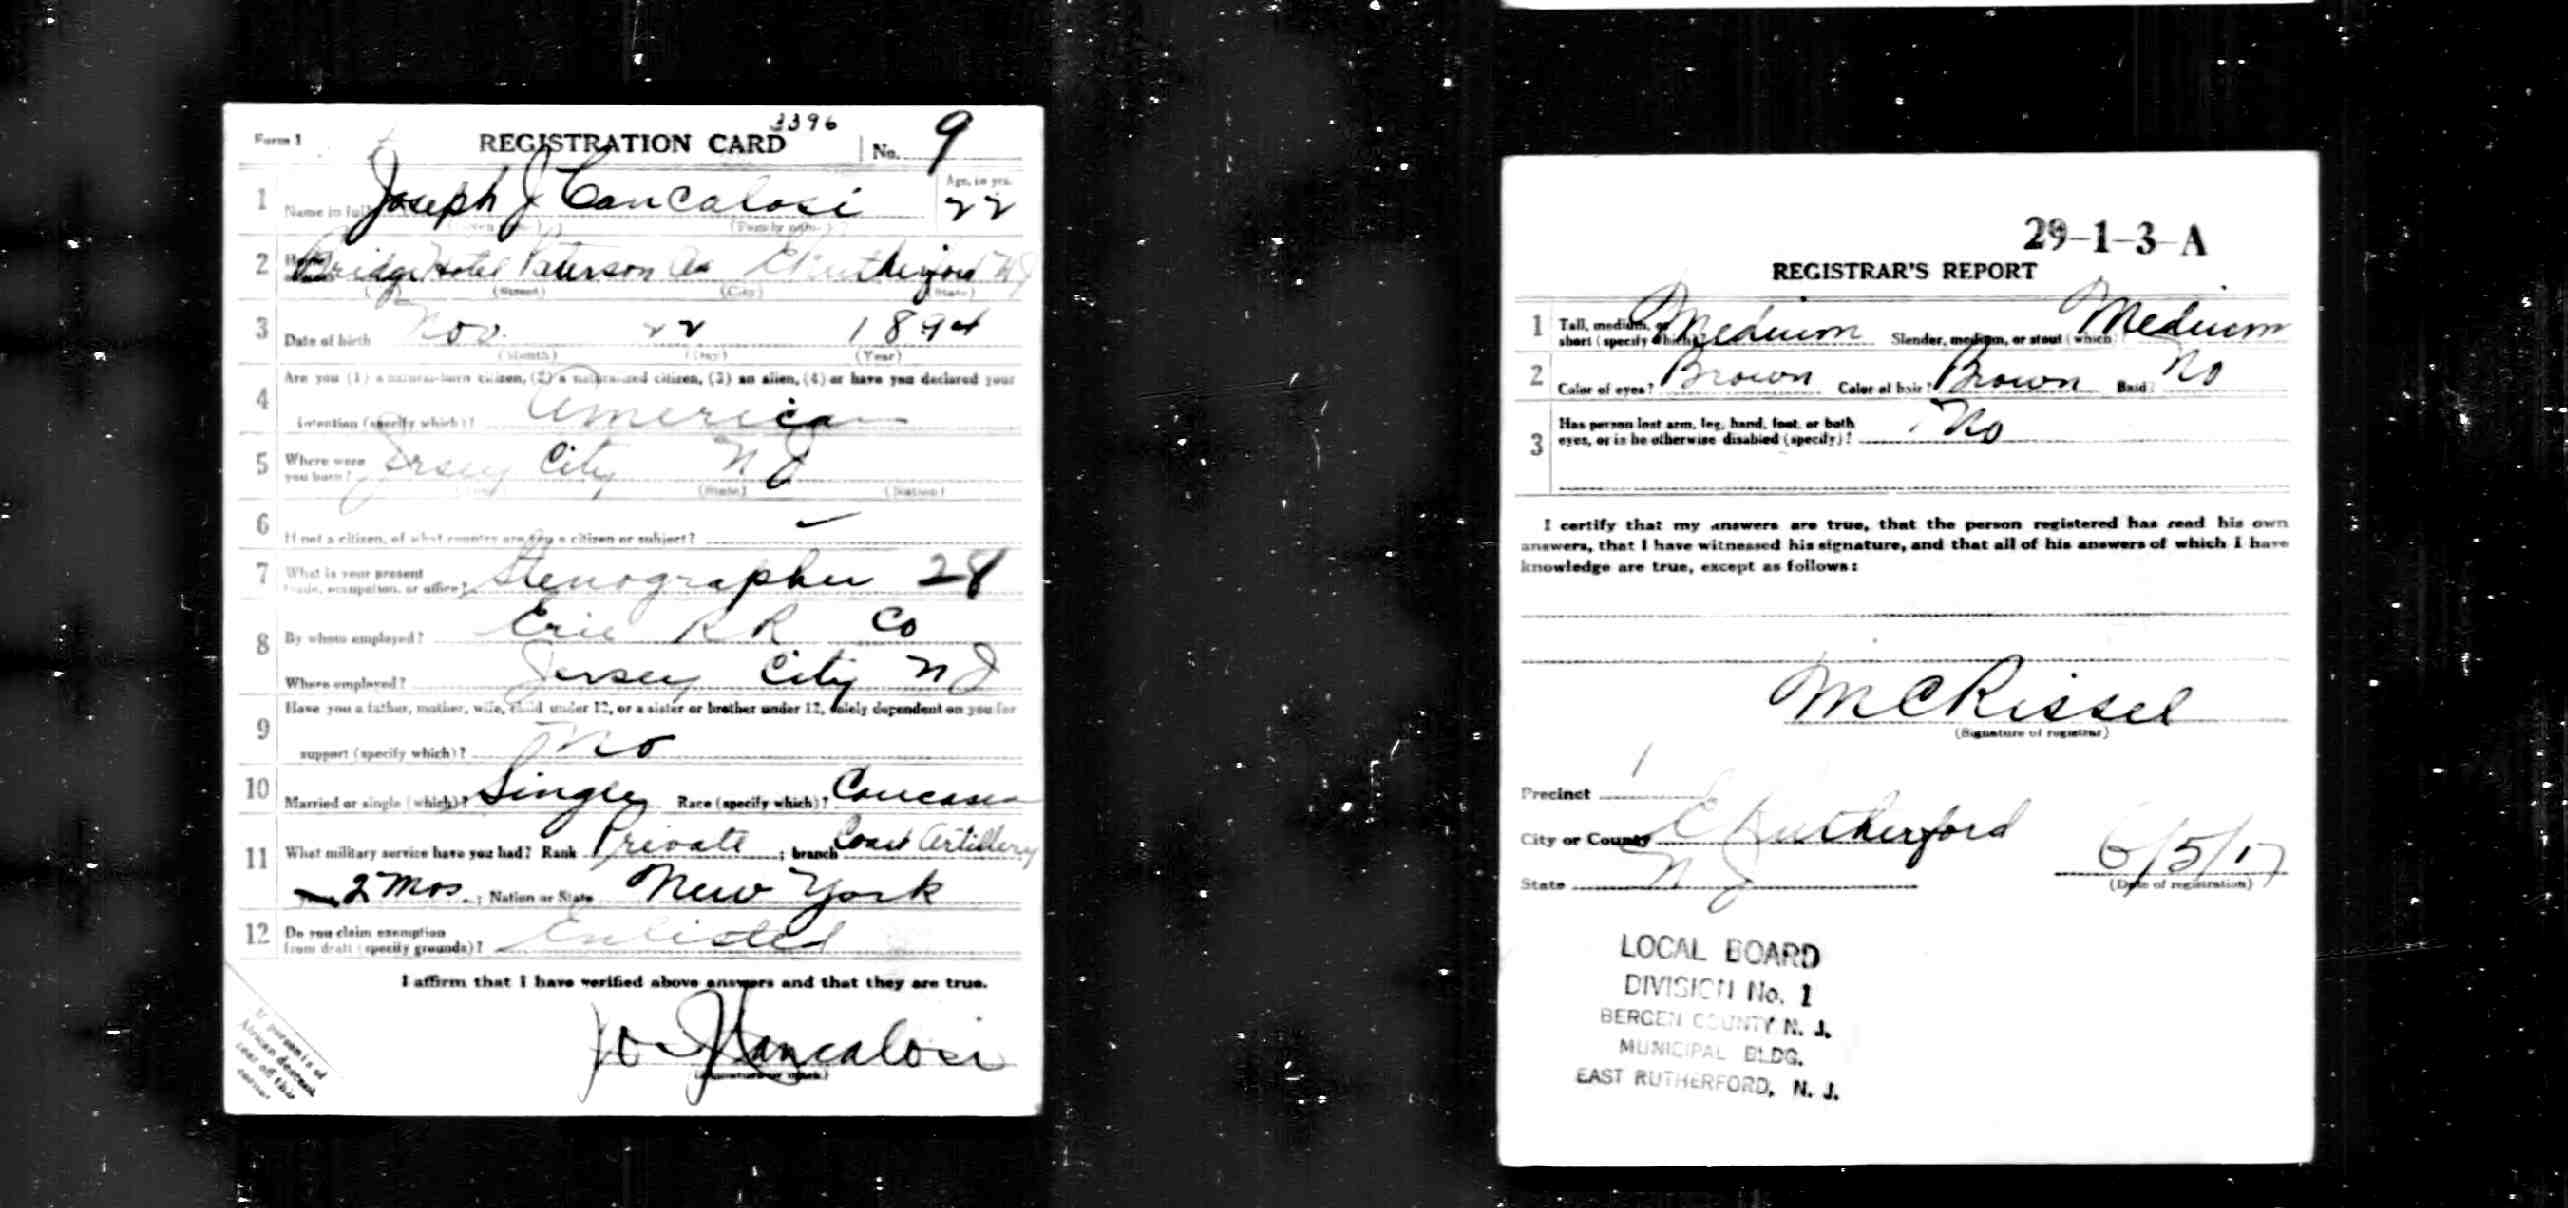 3396
Form 1 REGISTRATION CARD No. 9
1 Name in full Joseph J Cancalosi Age, in yrs. 22
(Family name)
2 Bridge Hotel Paterson Av E Rutherford NJ
(Street) (City) (State)
3 Date of birth Nov. 22 1894
(Month) (Day) (Year)
4 Are you (1) a natural-born citizen, (2) a naturalized citizen, (3) an alien, (4) or have you declared your
intention (specify which)? American
5 Where were you born? Jersey City N J
(State) (Nation)
6 If not a citizen, of what country are you a citizen or subject?
7 What is your present trade, occupation, or office? Stenographer 28
8 By whom employed? Erie R R Co
Where employed? Jersey City N J
9 Have you a father, mother, wife, child under 12, or a sister or brother under 12, solely dependent on you for
support (specify which)? No
10 Married or single (which)? Single Race (specify which)? Caucasian
11 What military service have you had? Rank Private ; branch Coast Artillery
2 Mos. ; Nation or State New York
12 Do you claim exemption from draft (specify grounds)? Enlisted
I affirm that I have verified above answers and that they are true.
Jos J Cancalosi
(Signature or mark)
If person is of
African descent
tear off this
corner
29-1-3-A
REGISTRAR'S REPORT
1 Tall, medium, or short (specify which)? Medium Slender, medium, or stout (which)? Medium
2 Color of eyes? Brown Color of hair? Brown Bald? No
3 Has person lost arm, leg, hand, foot, or both
eyes, or is he otherwise disabled (specify)? No
I certify that my answers are true, that the person registered has read his own
answers, that I have witnessed his signature, and that all of his answers of which I have
knowledge are true, except as follows:
M C Rissel
(Signature of registrar)
Precinct 1
City or County E Rutherford
State N J 6/5/17
(Date of registration)
LOCAL BOARD
DIVISION No. 1
BERGEN COUNTY N. J.
MUNICIPAL BLDG.
EAST RUTHERFORD, N. J.